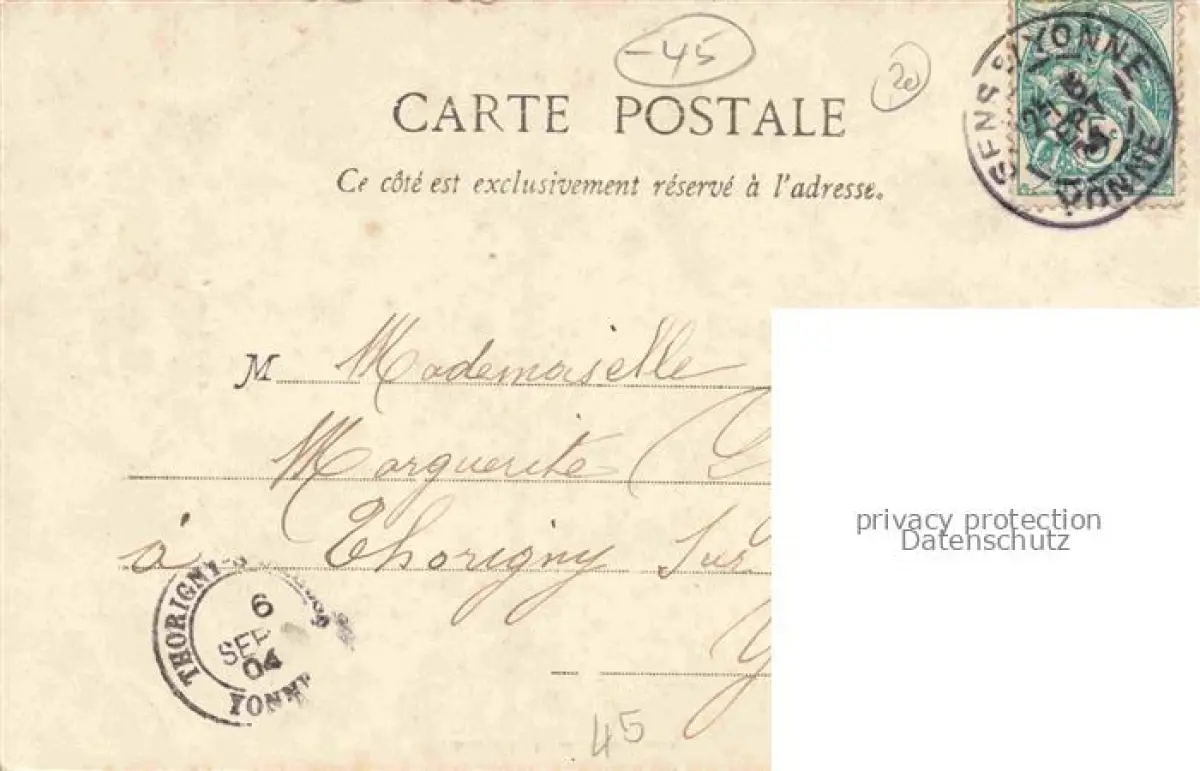 -45
20
CARTE POSTALE
Ce côté est exclusivement réservé à l'adresse.
SENS YONNE
5c
YONNE
M Mademoiselle
Marguerite
à Thorigny Sur
THORIGNY-S
6
SEP
04
YONNE
45
privacy protection
Datenschutz